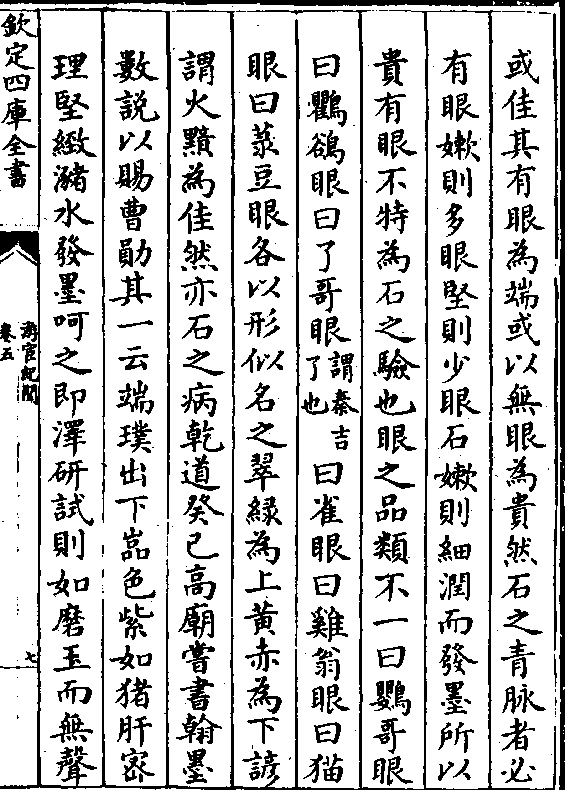 或佳其有眼為端或以無眼為貴然石之青脉者必
有眼嫰則多眼堅則少眼石嫰則細潤而發墨所以
貴有眼不特為石之驗也眼之品類不一曰鸚哥眼
曰鸜鵒眼曰了哥眼謂秦吉了也曰雀眼曰雞翁眼曰猫
眼曰菉豆眼各以形似名之翠緑為上黄赤為下諺
謂火黯為佳然亦石之病乾道癸已高廟嘗書翰墨
數説以賜曹勛其一云端璞出下嵓色紫如猪肝宻
理堅緻瀦水發墨呵之即澤研試則如磨玉而無聲
欽定四庫全書
游宦紀聞
卷五
七